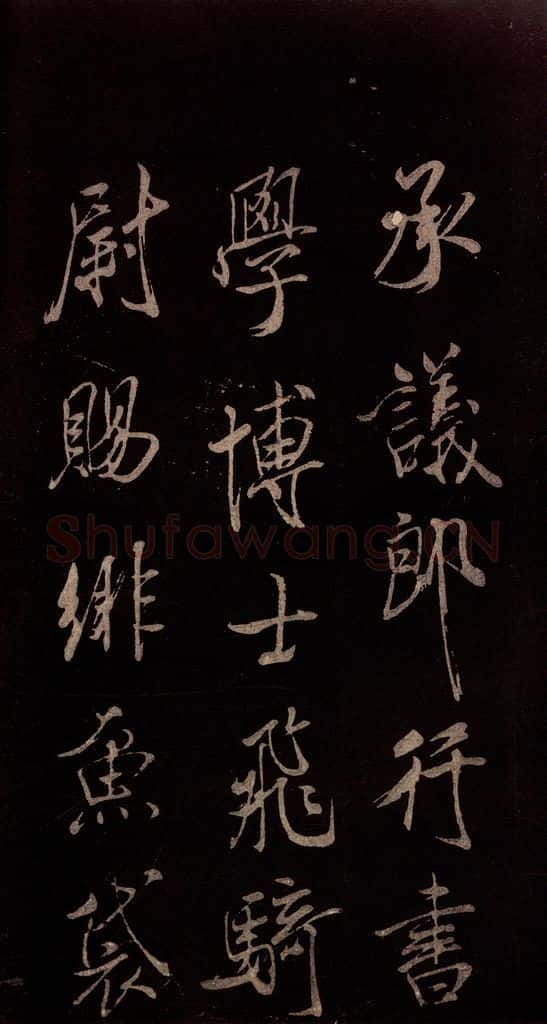 承議郎行書
學博士飛騎
尉賜緋魚袋
Shufawang.CN